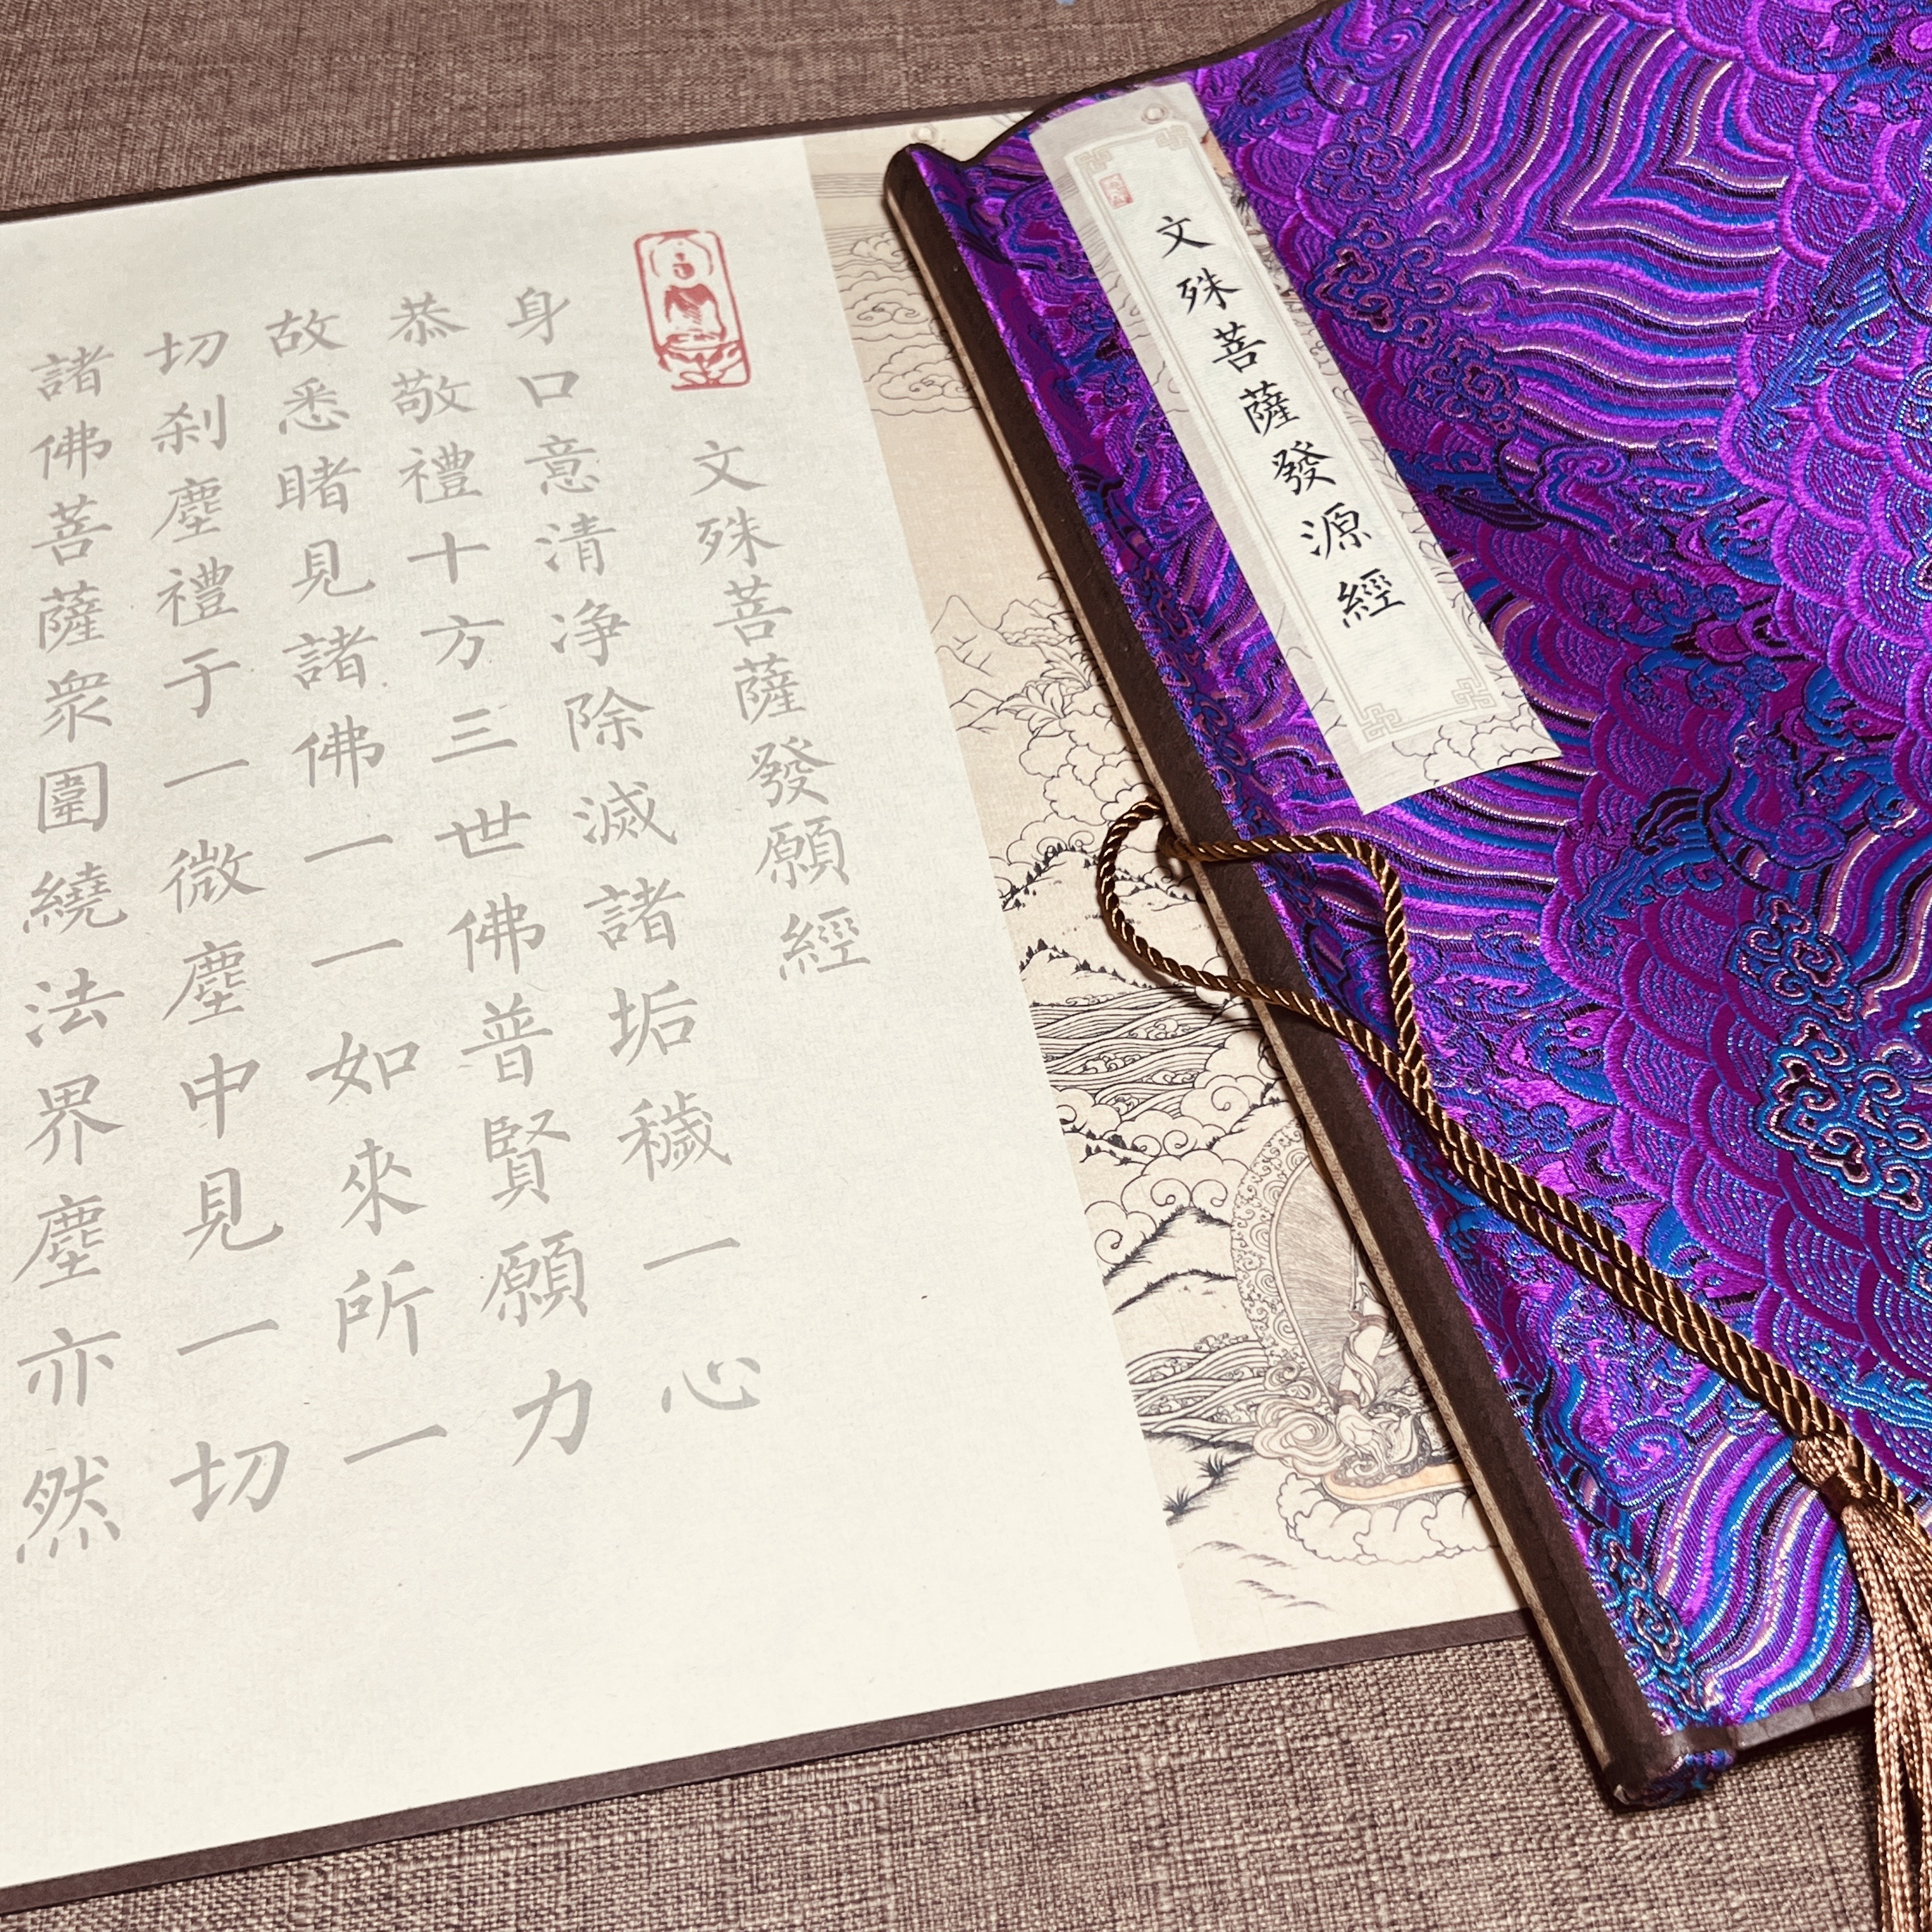 文殊菩薩發源經
文殊菩薩發願經
身口意清净除滅諸垢穢一心
恭敬禮十方三世佛普賢願力
故悉睹見諸佛一一如來所一
切刹塵禮于一微塵中見一切
諸佛菩薩衆圍繞法界塵亦然